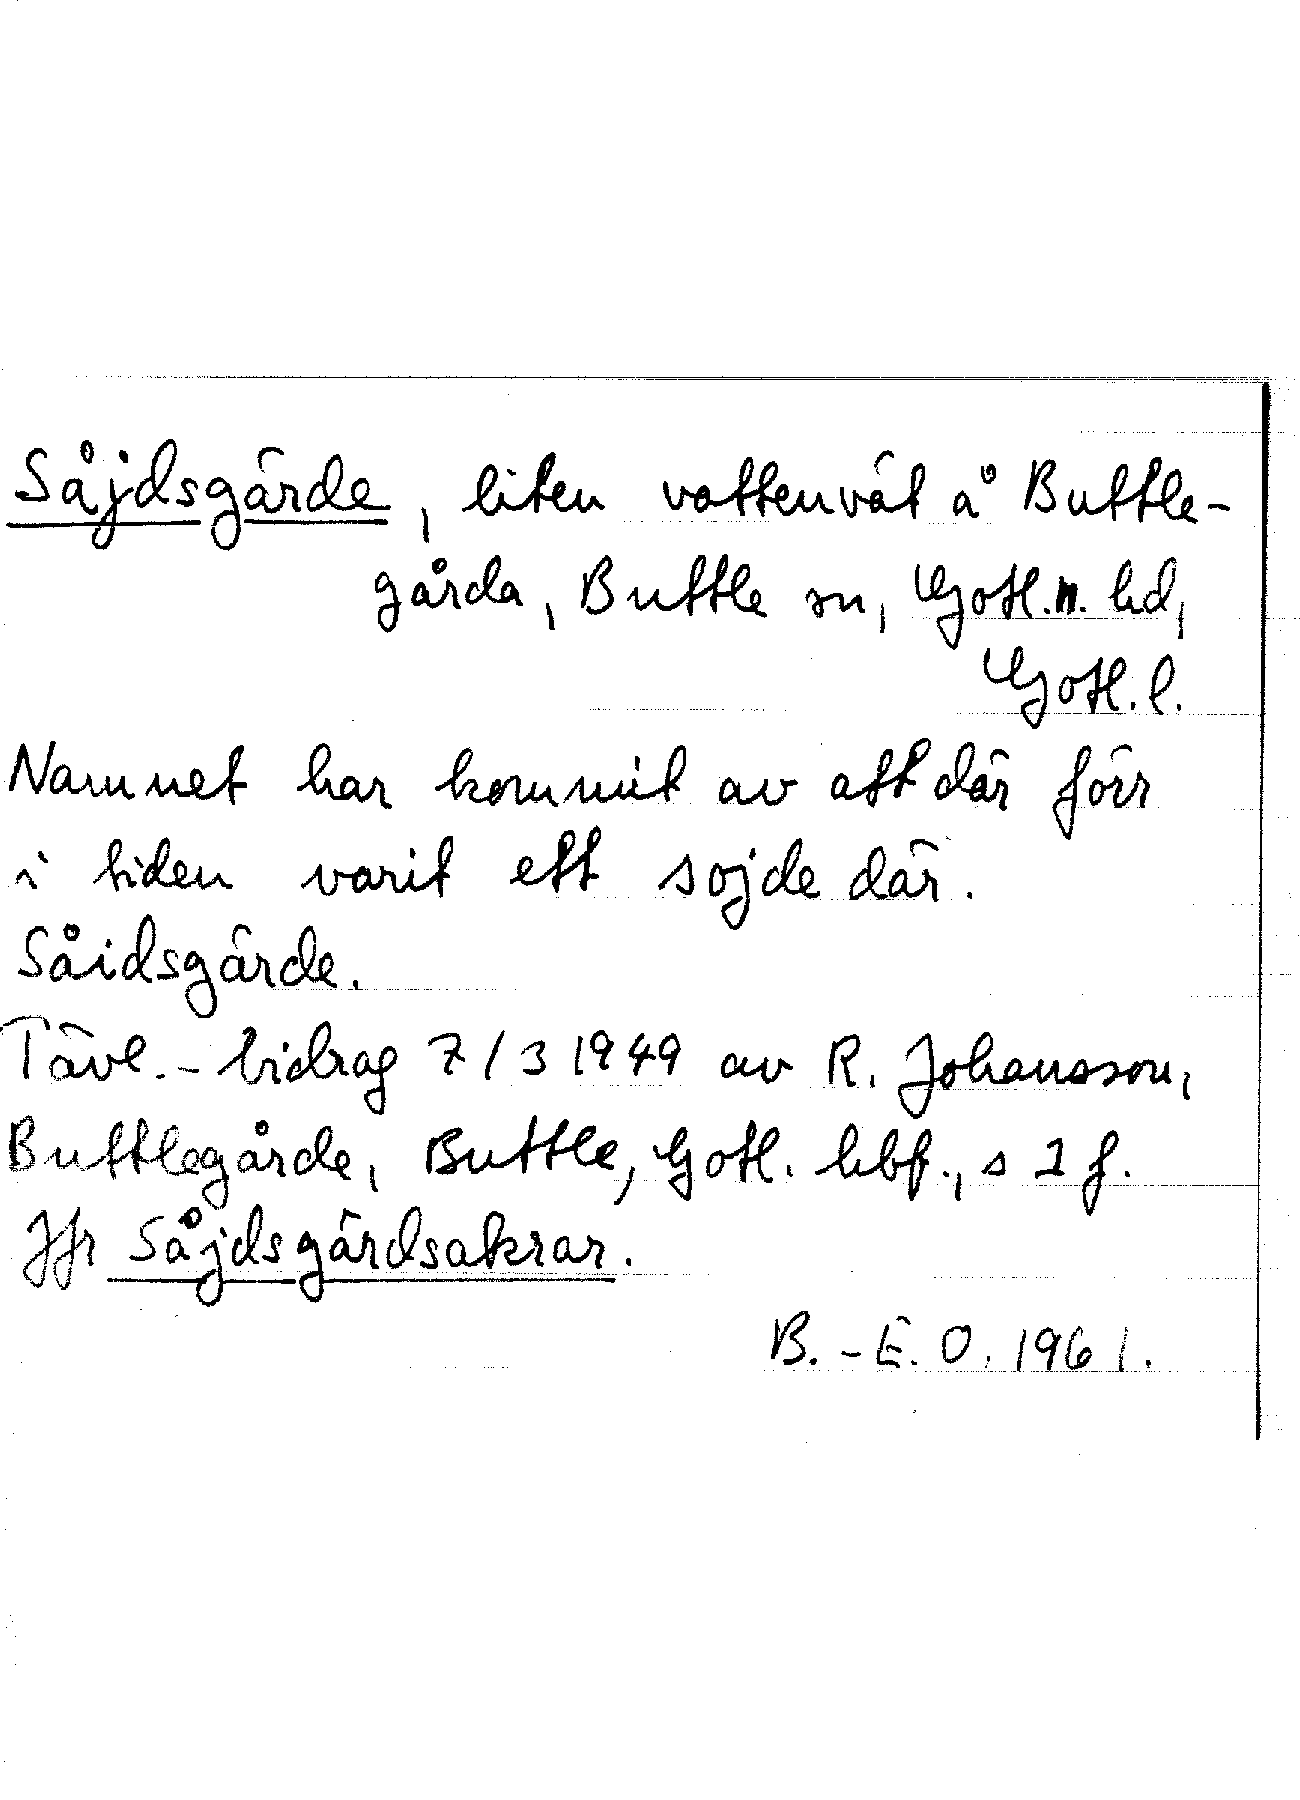 Såjdsgärde, liten vattenvät å Buttle-
gårda, Buttle sn, Gotl. n. hd,
Gotl. l.
Namnet har kommit av att där förr
i tiden varit ett sojde där.
Såidsgärde.
Tävl. - bidrag 7/3 1949 av R. Johansson,
Buttlegårde, Buttle, Gotl. hbf., s 2 f.
Jfr Såjdsgärdsakrar.
B. - E. O. 1961.